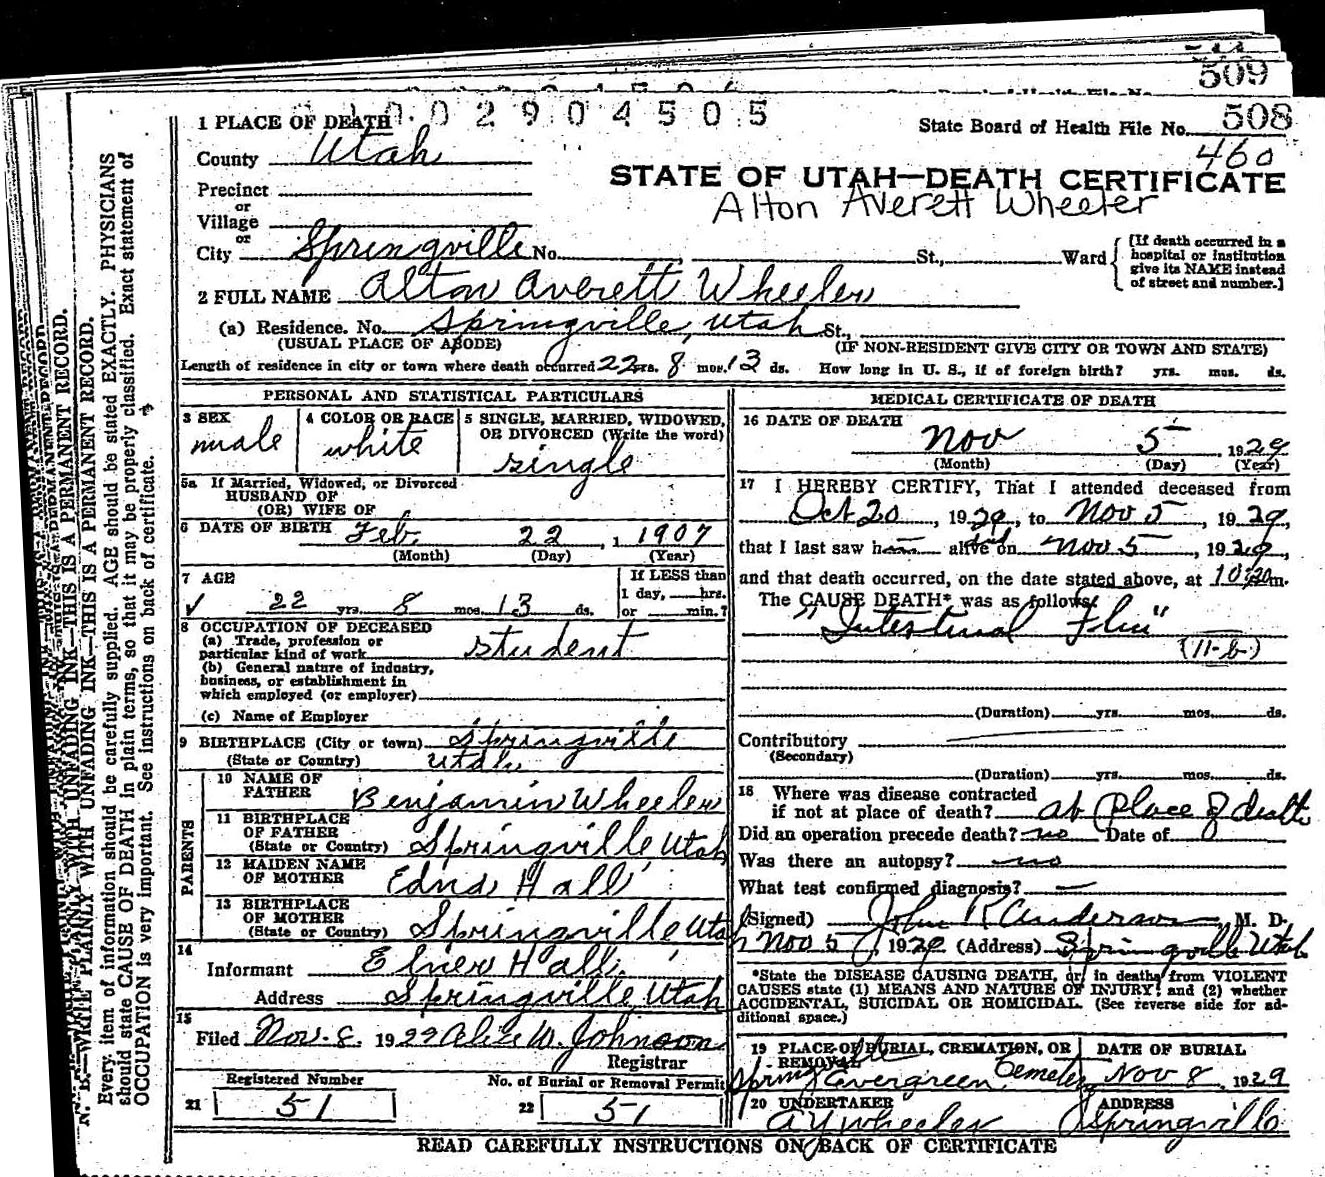 509
2904505
1 PLACE OF DEATH
State Board of Health File No. 508
460
County Utah
STATE OF UTAH—DEATH CERTIFICATE
Precinct
Alton Averett Wheeler
or
Village
or
City Springville No. St., Ward
[If death occurred in a
hospital or institution
give its NAME instead
of street and number.]
2 FULL NAME Alton Averett Wheeler
(a) Residence. No. Springville, Utah St.,
(USUAL PLACE OF ABODE) (IF NON-RESIDENT GIVE CITY OR TOWN AND STATE)
Length of residence in city or town where death occurred 22 yrs. 8 mos. 13 ds. How long in U. S., if of foreign birth? yrs. mos. ds.
PERSONAL AND STATISTICAL PARTICULARS
3 SEX
male
4 COLOR OR RACE
white
5 SINGLE, MARRIED, WIDOWED,
OR DIVORCED (Write the word)
single
5a If Married, Widowed, or Divorced
HUSBAND OF
(OR) WIFE OF
6 DATE OF BIRTH Feb. 22, 1907
(Month) (Day) (Year)
7 AGE
22 yrs. 8 mos. 13 ds.
If LESS than
1 day, hrs.
or min.?
8 OCCUPATION OF DECEASED
(a) Trade, profession or
particular kind of work student
(b) General nature of industry,
business, or establishment in
which employed (or employer)
(c) Name of Employer
9 BIRTHPLACE (City or town) Springville
(State or Country) Utah
PARENTS
10 NAME OF
FATHER Benjamin Wheeler
11 BIRTHPLACE
OF FATHER
(State or Country) Springville Utah
12 MAIDEN NAME
OF MOTHER Edna Hall
13 BIRTHPLACE
OF MOTHER
(State or Country) Springville Utah
14
Informant Elmer Hall
Address Springville Utah
15
Filed Nov. 8. 1929 Alice M. Johnson
Registrar
Registered Number
21 51
No. of Burial or Removal Permit
22 51
MEDICAL CERTIFICATE OF DEATH
16 DATE OF DEATH
Nov 5 1929
(Month) (Day) (Year)
17 I HEREBY CERTIFY, That I attended deceased from
Oct 20, 1929, to Nov 5, 1929,
that I last saw h alive on Nov 5, 1929,
and that death occurred, on the date stated above, at 10:30 m.
The CAUSE DEATH* was as follows:
"Intestinal Flu"
(11-b)
(Duration) yrs. mos. ds.
Contributory
(Secondary)
(Duration) yrs. mos. ds.
18 Where was disease contracted
if not at place of death? at place of death
Did an operation precede death? no Date of
Was there an autopsy? no
What test confirmed diagnosis? —
(Signed) John R Anderson, M. D.
Nov 5, 1929 (Address) Springville Utah
*State the DISEASE CAUSING DEATH, or, in deaths from VIOLENT
CAUSES state (1) MEANS AND NATURE OF INJURY; and (2) whether
ACCIDENTAL, SUICIDAL OR HOMICIDAL. (See reverse side for ad-
ditional space.)
19 PLACE OF BURIAL, CREMATION, OR
REMOVAL
Springville Evergreen Cemetery
DATE OF BURIAL
Nov 8, 1929
20 UNDERTAKER
A Y Wheeler
ADDRESS
Springville
READ CAREFULLY INSTRUCTIONS ON BACK OF CERTIFICATE
N. B.—WRITE PLAINLY WITH UNFADING INK—THIS IS A PERMANENT RECORD.
Every item of information should be carefully supplied. AGE should be stated EXACTLY. PHYSICIANS
should state CAUSE OF DEATH in plain terms, so that it may be properly classified. Exact statement of
OCCUPATION is very important. See instructions on back of certificate.